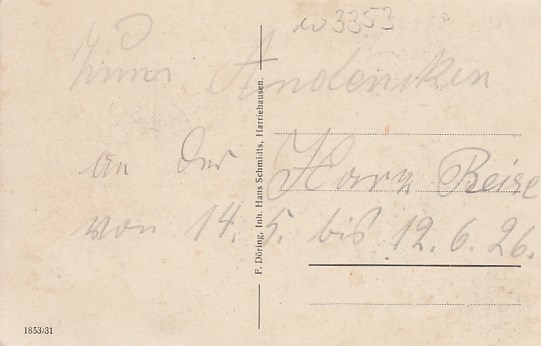 3353
Zum Andenken
an der Harz Reise
von 14. 5. bis 12. 6. 26.
F. Döring, Inh. Hans Schmidts, Harriehausen.
1853/31